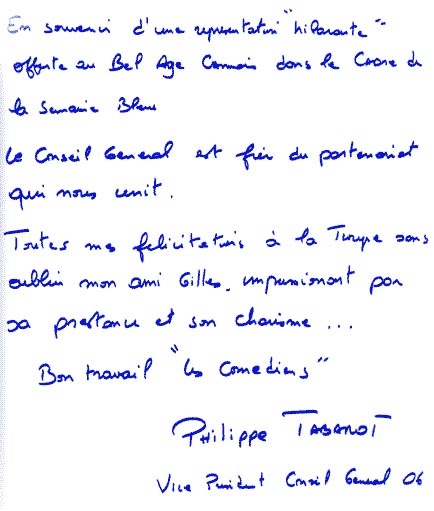 En souvenir d'une représentation "hilarante"
offerte au Bel Age Cannois dans le Cadre de
la Semaine Bleue
Le Conseil General est fier du partenariat
qui nous unit.
Toutes mes felicitations à la Troupe sans
oublier mon ami Gilles, impressionant par
sa prestance et son charisme ...
Bon travail "les Comediens"
Philippe TABAROT
Vice President Conseil General 06